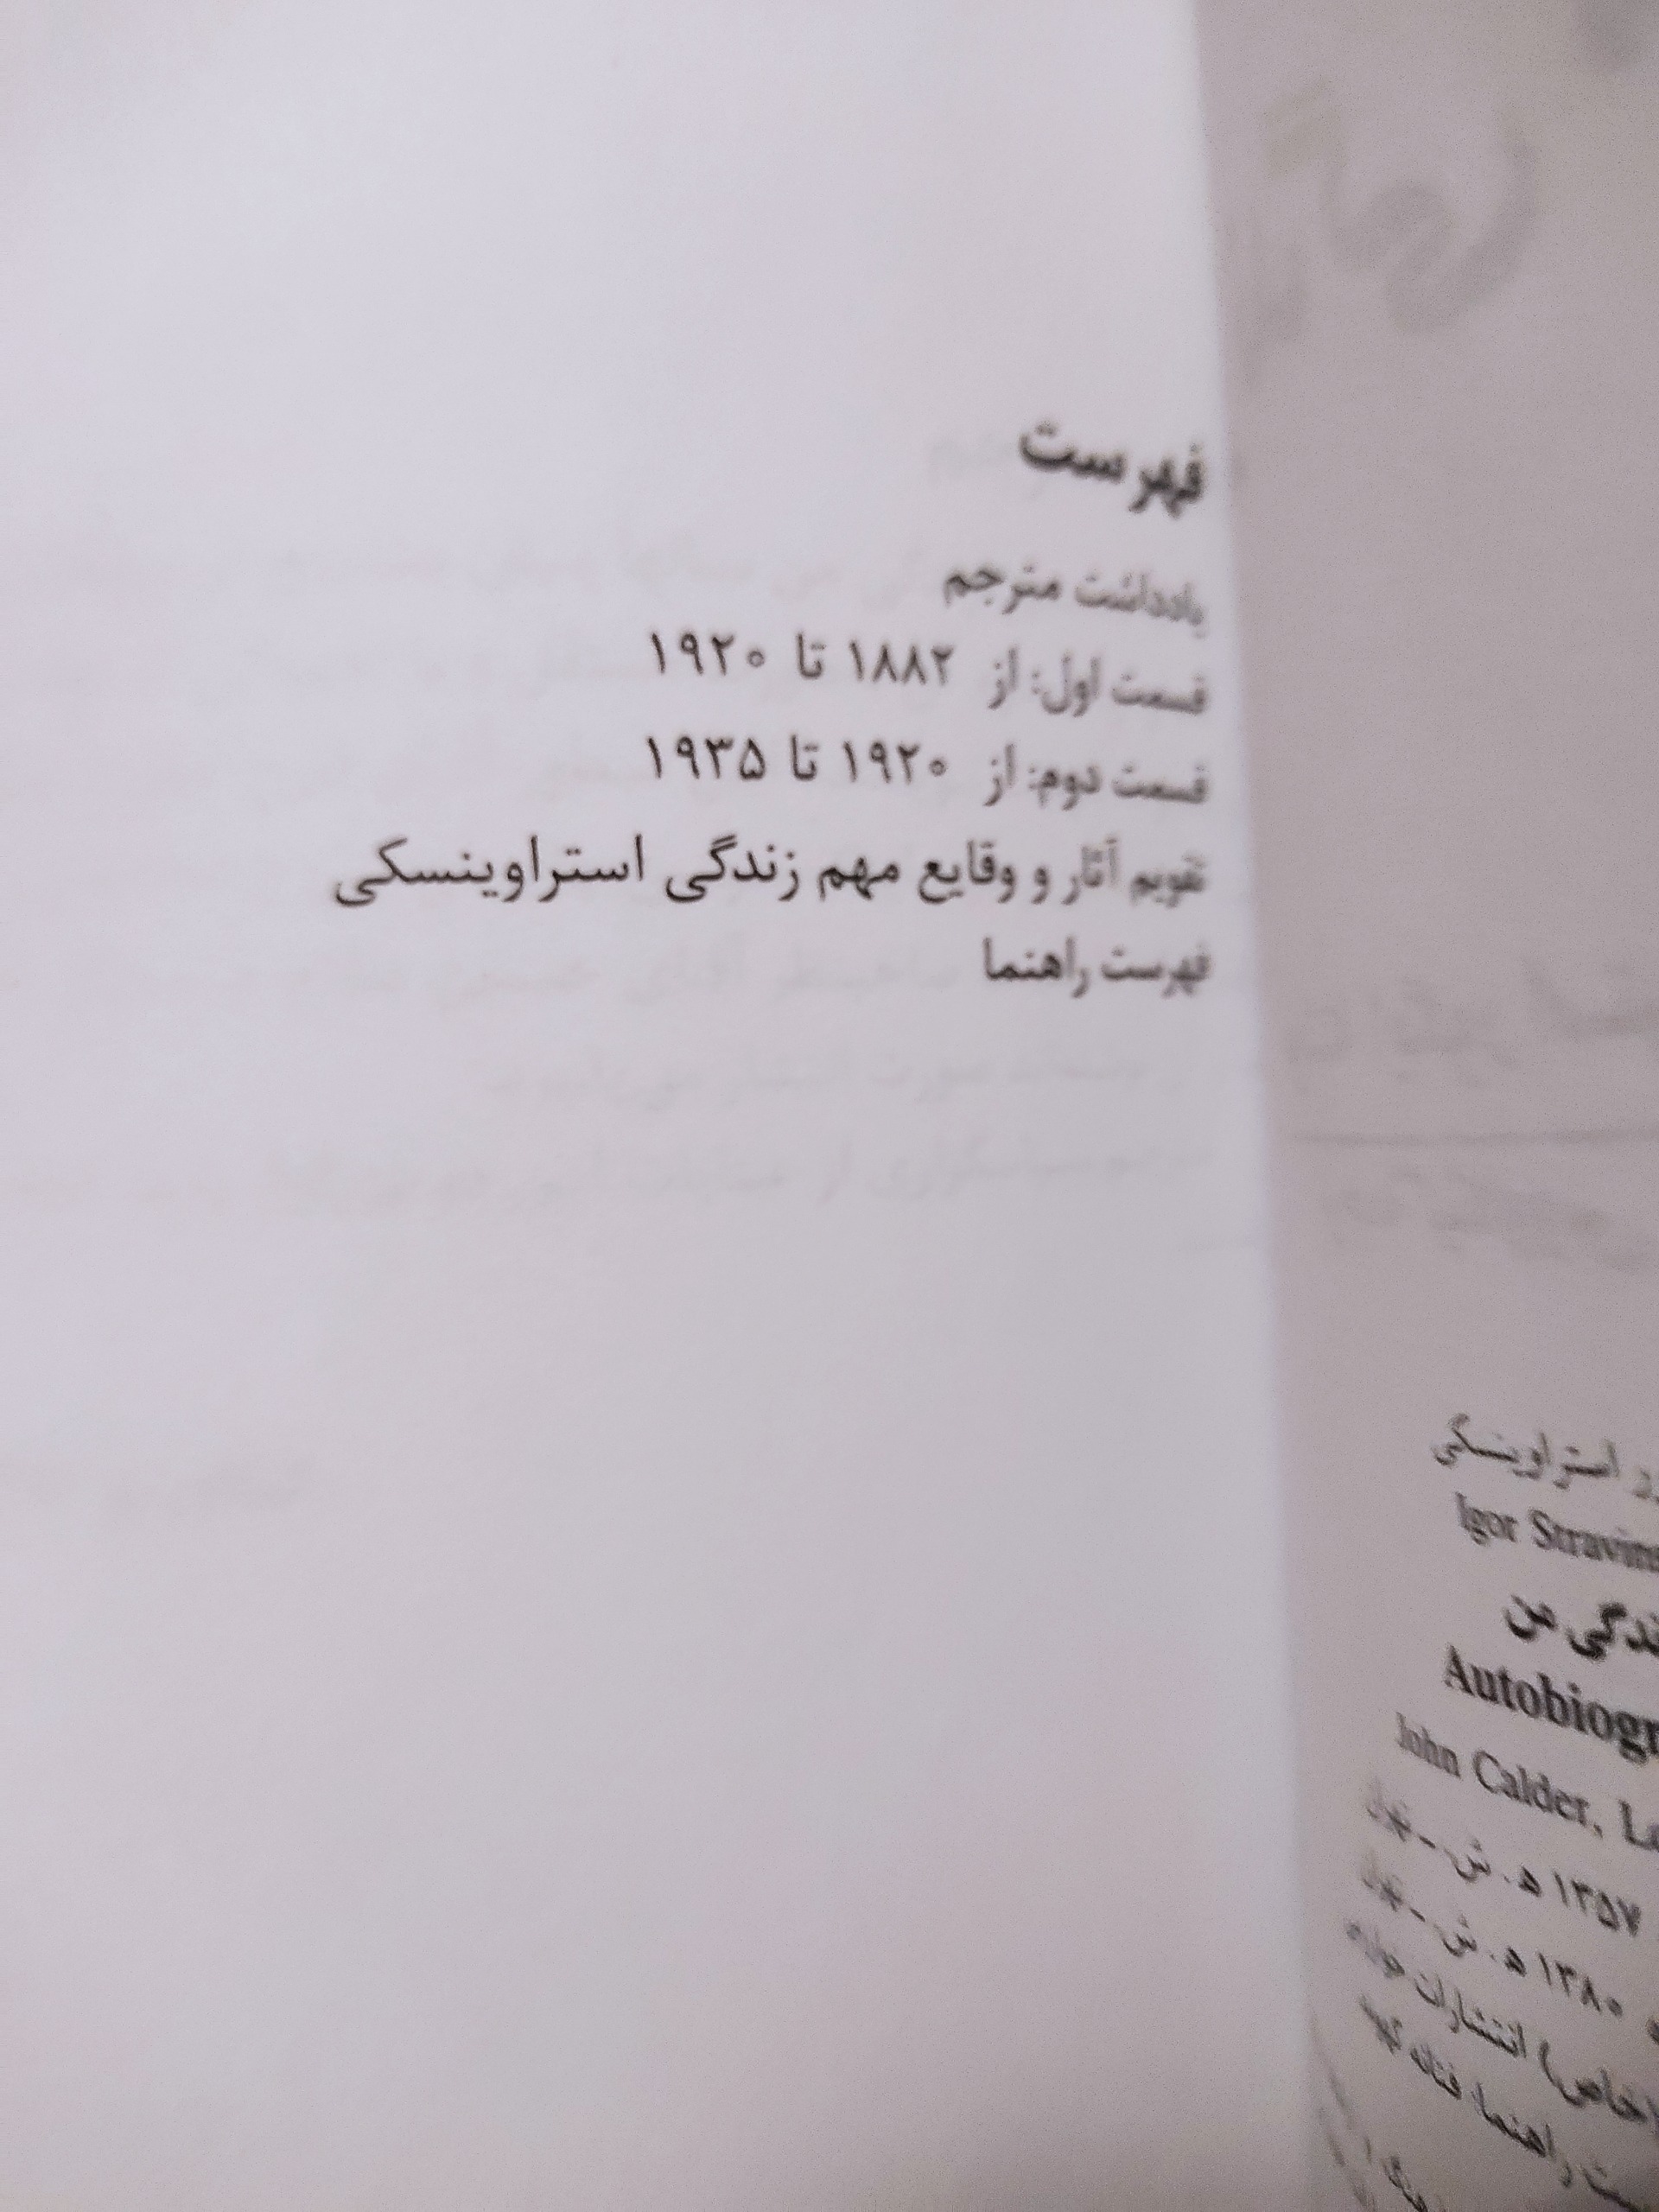 فهرست
یادداشت مترجم
قسمت اول: از ۱۸۸۲ تا ۱۹۲۰
قسمت دوم: از ۱۹۲۰ تا ۱۹۳۵
تقویم آثار و وقایع مهم زندگی استراوینسکی
فهرست راهنما
استراوینسکی
Igor Stravins
ندگی من
Autobiogr
John Calder, Lo
۱۳۵۷ ه. ش. ـ تهران
۱۳۸۰ ه. ش. ـ تهران
(خاص) انتشارات
راهنما: فتانه